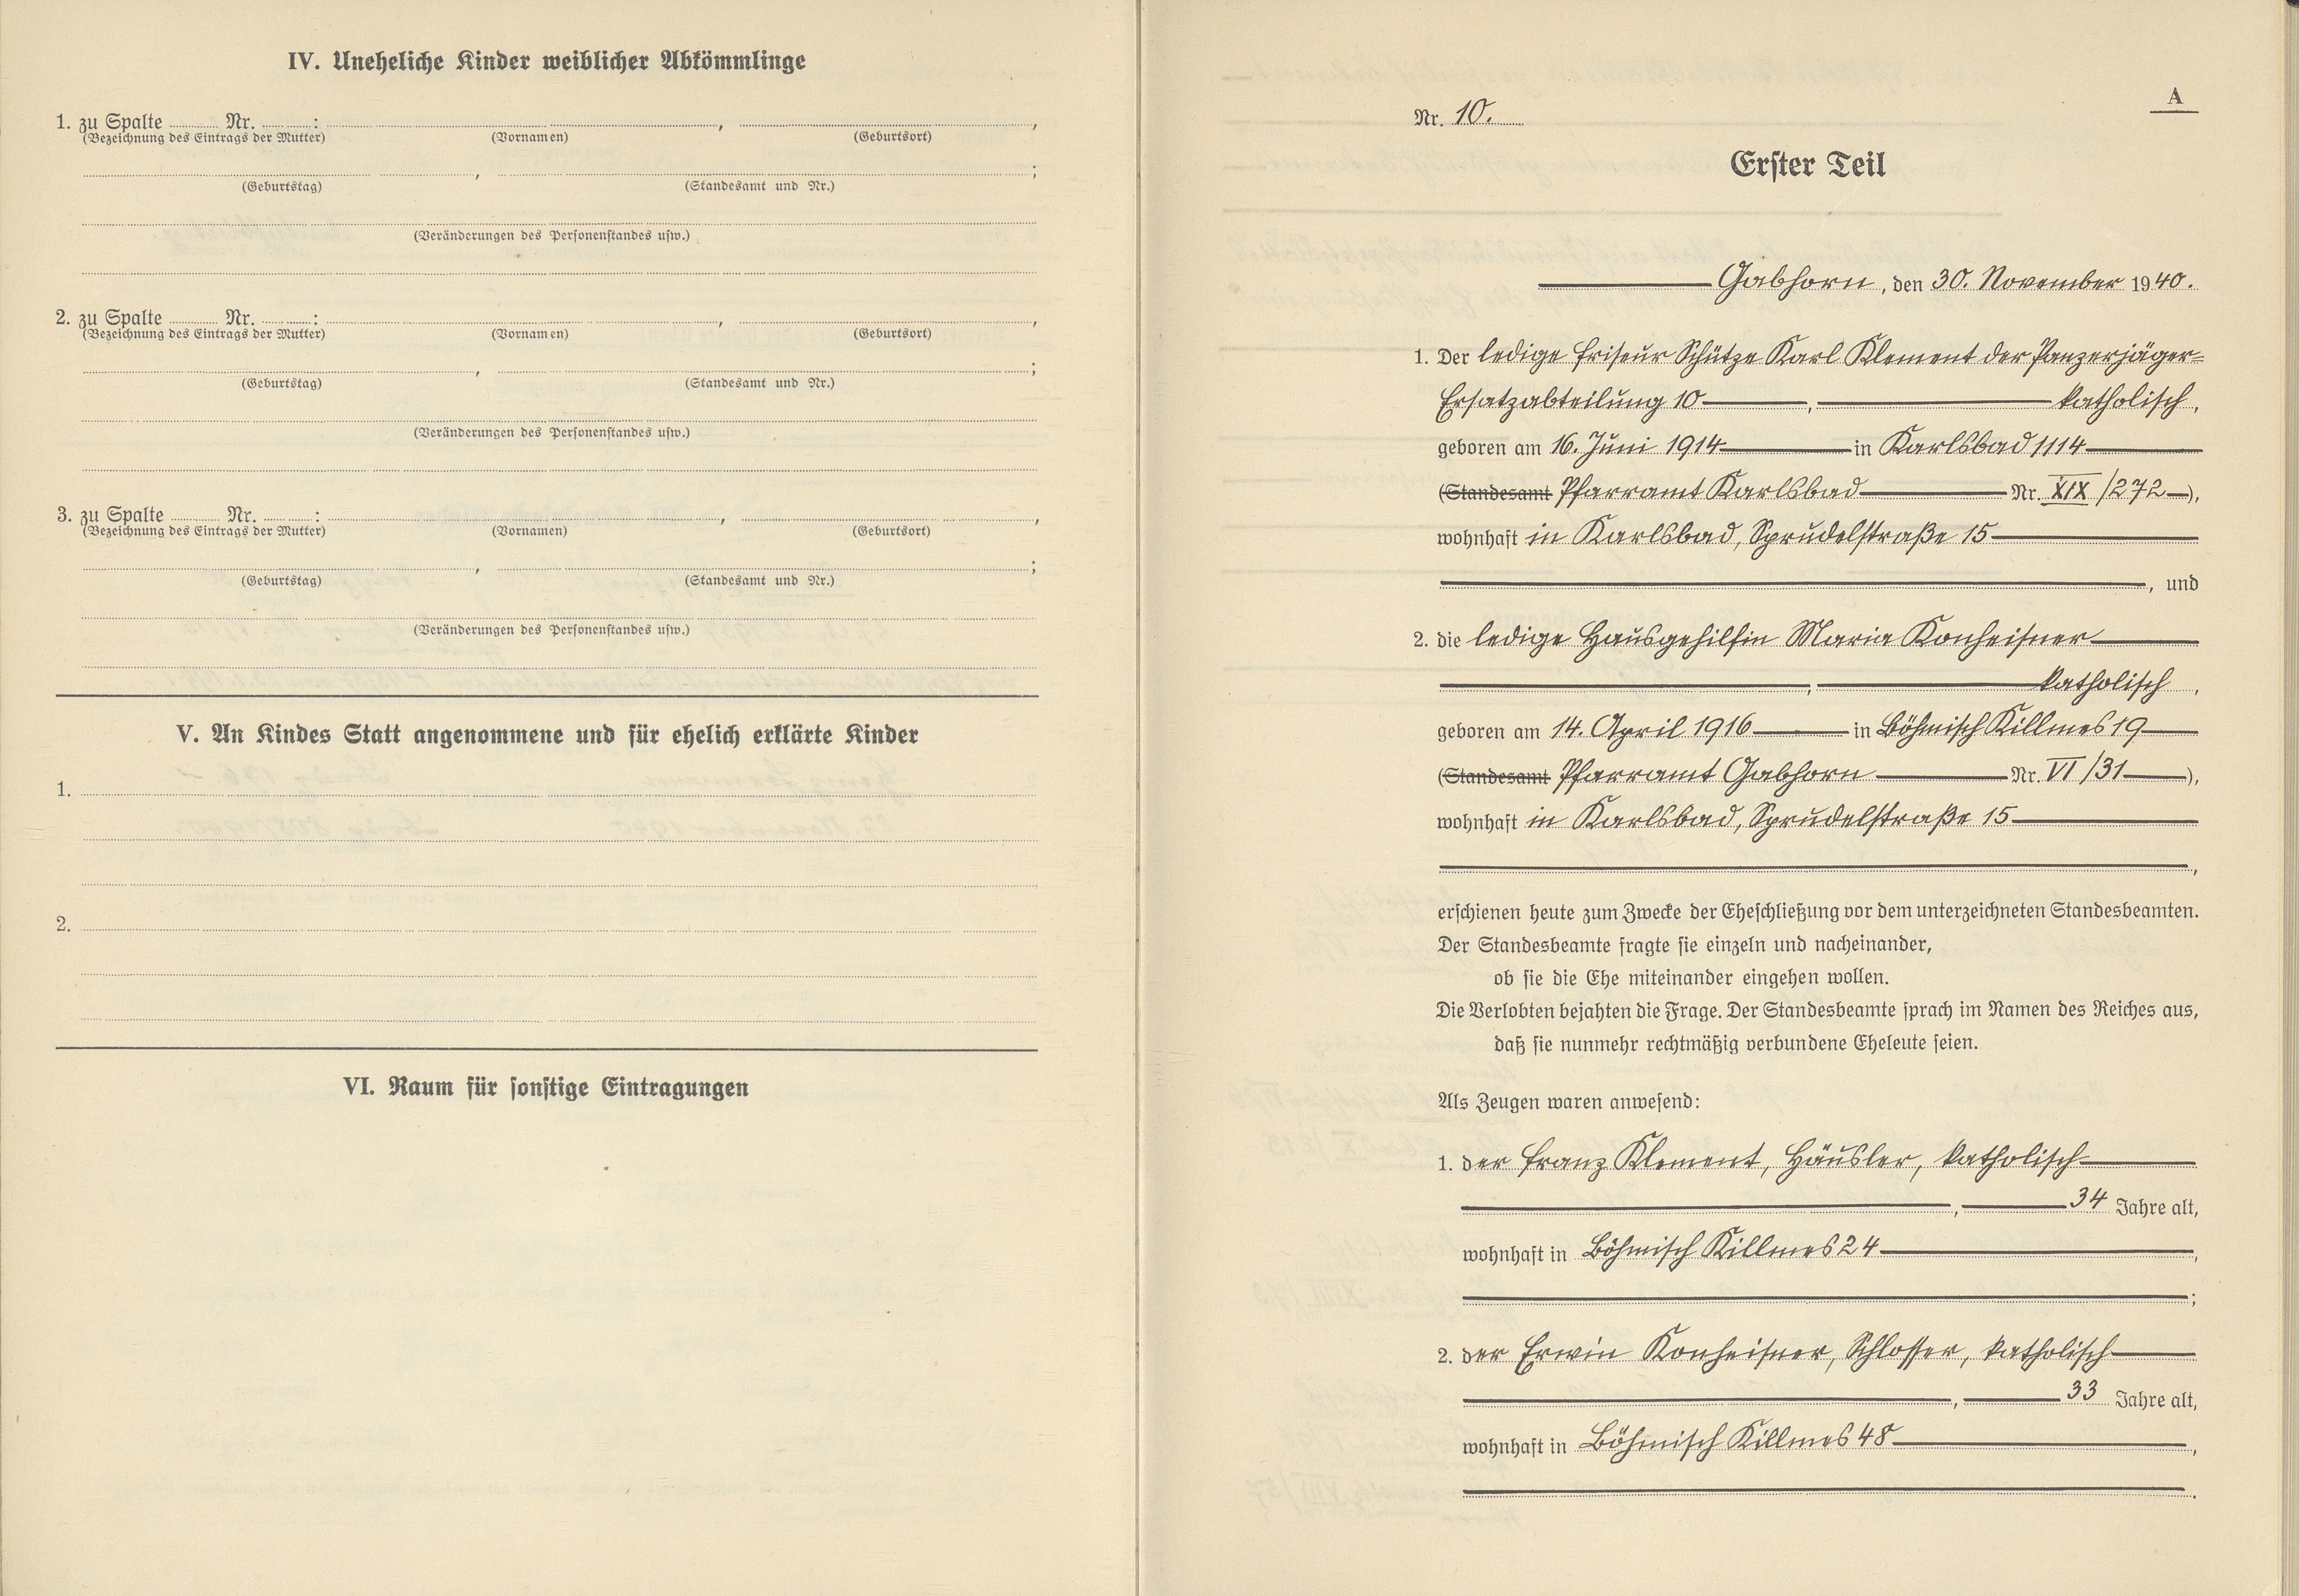 IV. Uneheliche Kinder weiblicher Abkömmlinge
1. zu Spalte ........ Nr. ........: ........, ........,
(Bezeichnung des Eintrags der Mutter) (Vornamen) (Geburtsort)
........, ........;
(Geburtstag) (Standesamt und Nr.)
(Veränderungen des Personenstandes usw.)
2. zu Spalte ........ Nr. ........: ........, ........,
(Bezeichnung des Eintrags der Mutter) (Vornamen) (Geburtsort)
........, ........;
(Geburtstag) (Standesamt und Nr.)
(Veränderungen des Personenstandes usw.)
3. zu Spalte ........ Nr. ........: ........, ........,
(Bezeichnung des Eintrags der Mutter) (Vornamen) (Geburtsort)
........, ........;
(Geburtstag) (Standesamt und Nr.)
(Veränderungen des Personenstandes usw.)
V. An Kindes Statt angenommene und für ehelich erklärte Kinder
1.
2.
VI. Raum für sonstige Eintragungen
A
Nr. 10.
Erster Teil
Gabhorn, den 30. November 1940.
1. Der ledige Friseur Schütze Karl Klement der Panzerjäger=
Ersatzabteilung 10, katholisch,
geboren am 16. Juni 1914 in Karlsbad 1114
(Standesamt Pfarramt Karlsbad Nr. XIX/272),
wohnhaft in Karlsbad, Sprudelstraße 15
, und
2. die ledige Hausgehilfin Maria Konheisner
, katholisch,
geboren am 14. April 1916 in Böhmisch Killmes 19
(Standesamt Pfarramt Gabhorn Nr. VI/31),
wohnhaft in Karlsbad, Sprudelstraße 15
,
erschienen heute zum Zwecke der Eheschließung vor dem unterzeichneten Standesbeamten.
Der Standesbeamte fragte sie einzeln und nacheinander,
ob sie die Ehe miteinander eingehen wollen.
Die Verlobten bejahten die Frage. Der Standesbeamte sprach im Namen des Reiches aus,
daß sie nunmehr rechtmäßig verbundene Eheleute seien.
Als Zeugen waren anwesend:
1. der Franz Klement, Häusler, katholisch
, 34 Jahre alt,
wohnhaft in Böhmisch Killmes 24,
;
2. der Erwin Konheisner, Schlosser, katholisch
, 33 Jahre alt,
wohnhaft in Böhmisch Killmes 48,
.